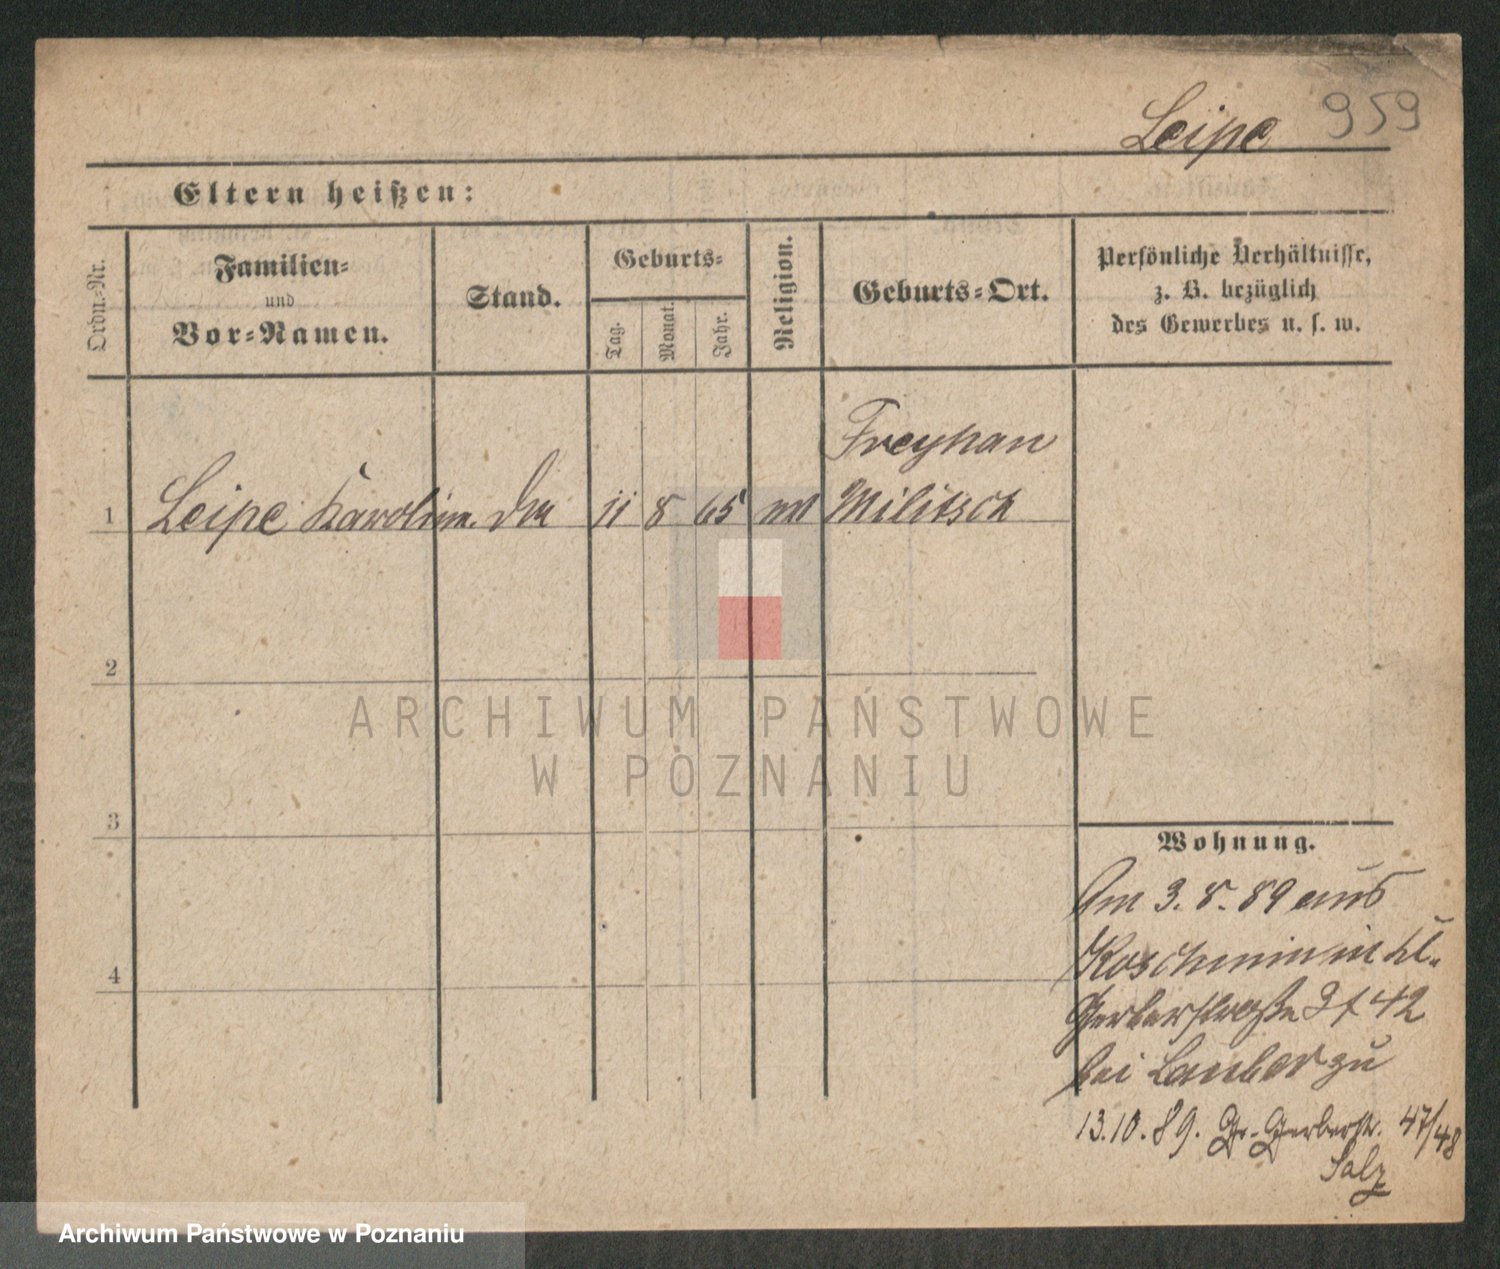 Leipe 959
Eltern heißen:
Ordn.-Nr.
Familien-
und
Vor-Namen.
Stand.
Geburts-
Tag.
Monat.
Jahr.
Religion.
Geburts-Ort.
Persönliche Verhältnisse,
z. B. bezüglich
des Gewerbes u. s. w.
Freyhan
1 Leipe Karolina 11 8 65 Militsch
2
3
4
Wohnung.
Am 3. 8. 89 aus
Koschmin in kl.
Gerberstraße 42
bei Lauber zu
13.10.89. Gr. Gerberstr. 47/48
Salz
ARCHIWUM PAŃSTWOWE
W POZNANIU
Archiwum Państwowe w Poznaniu